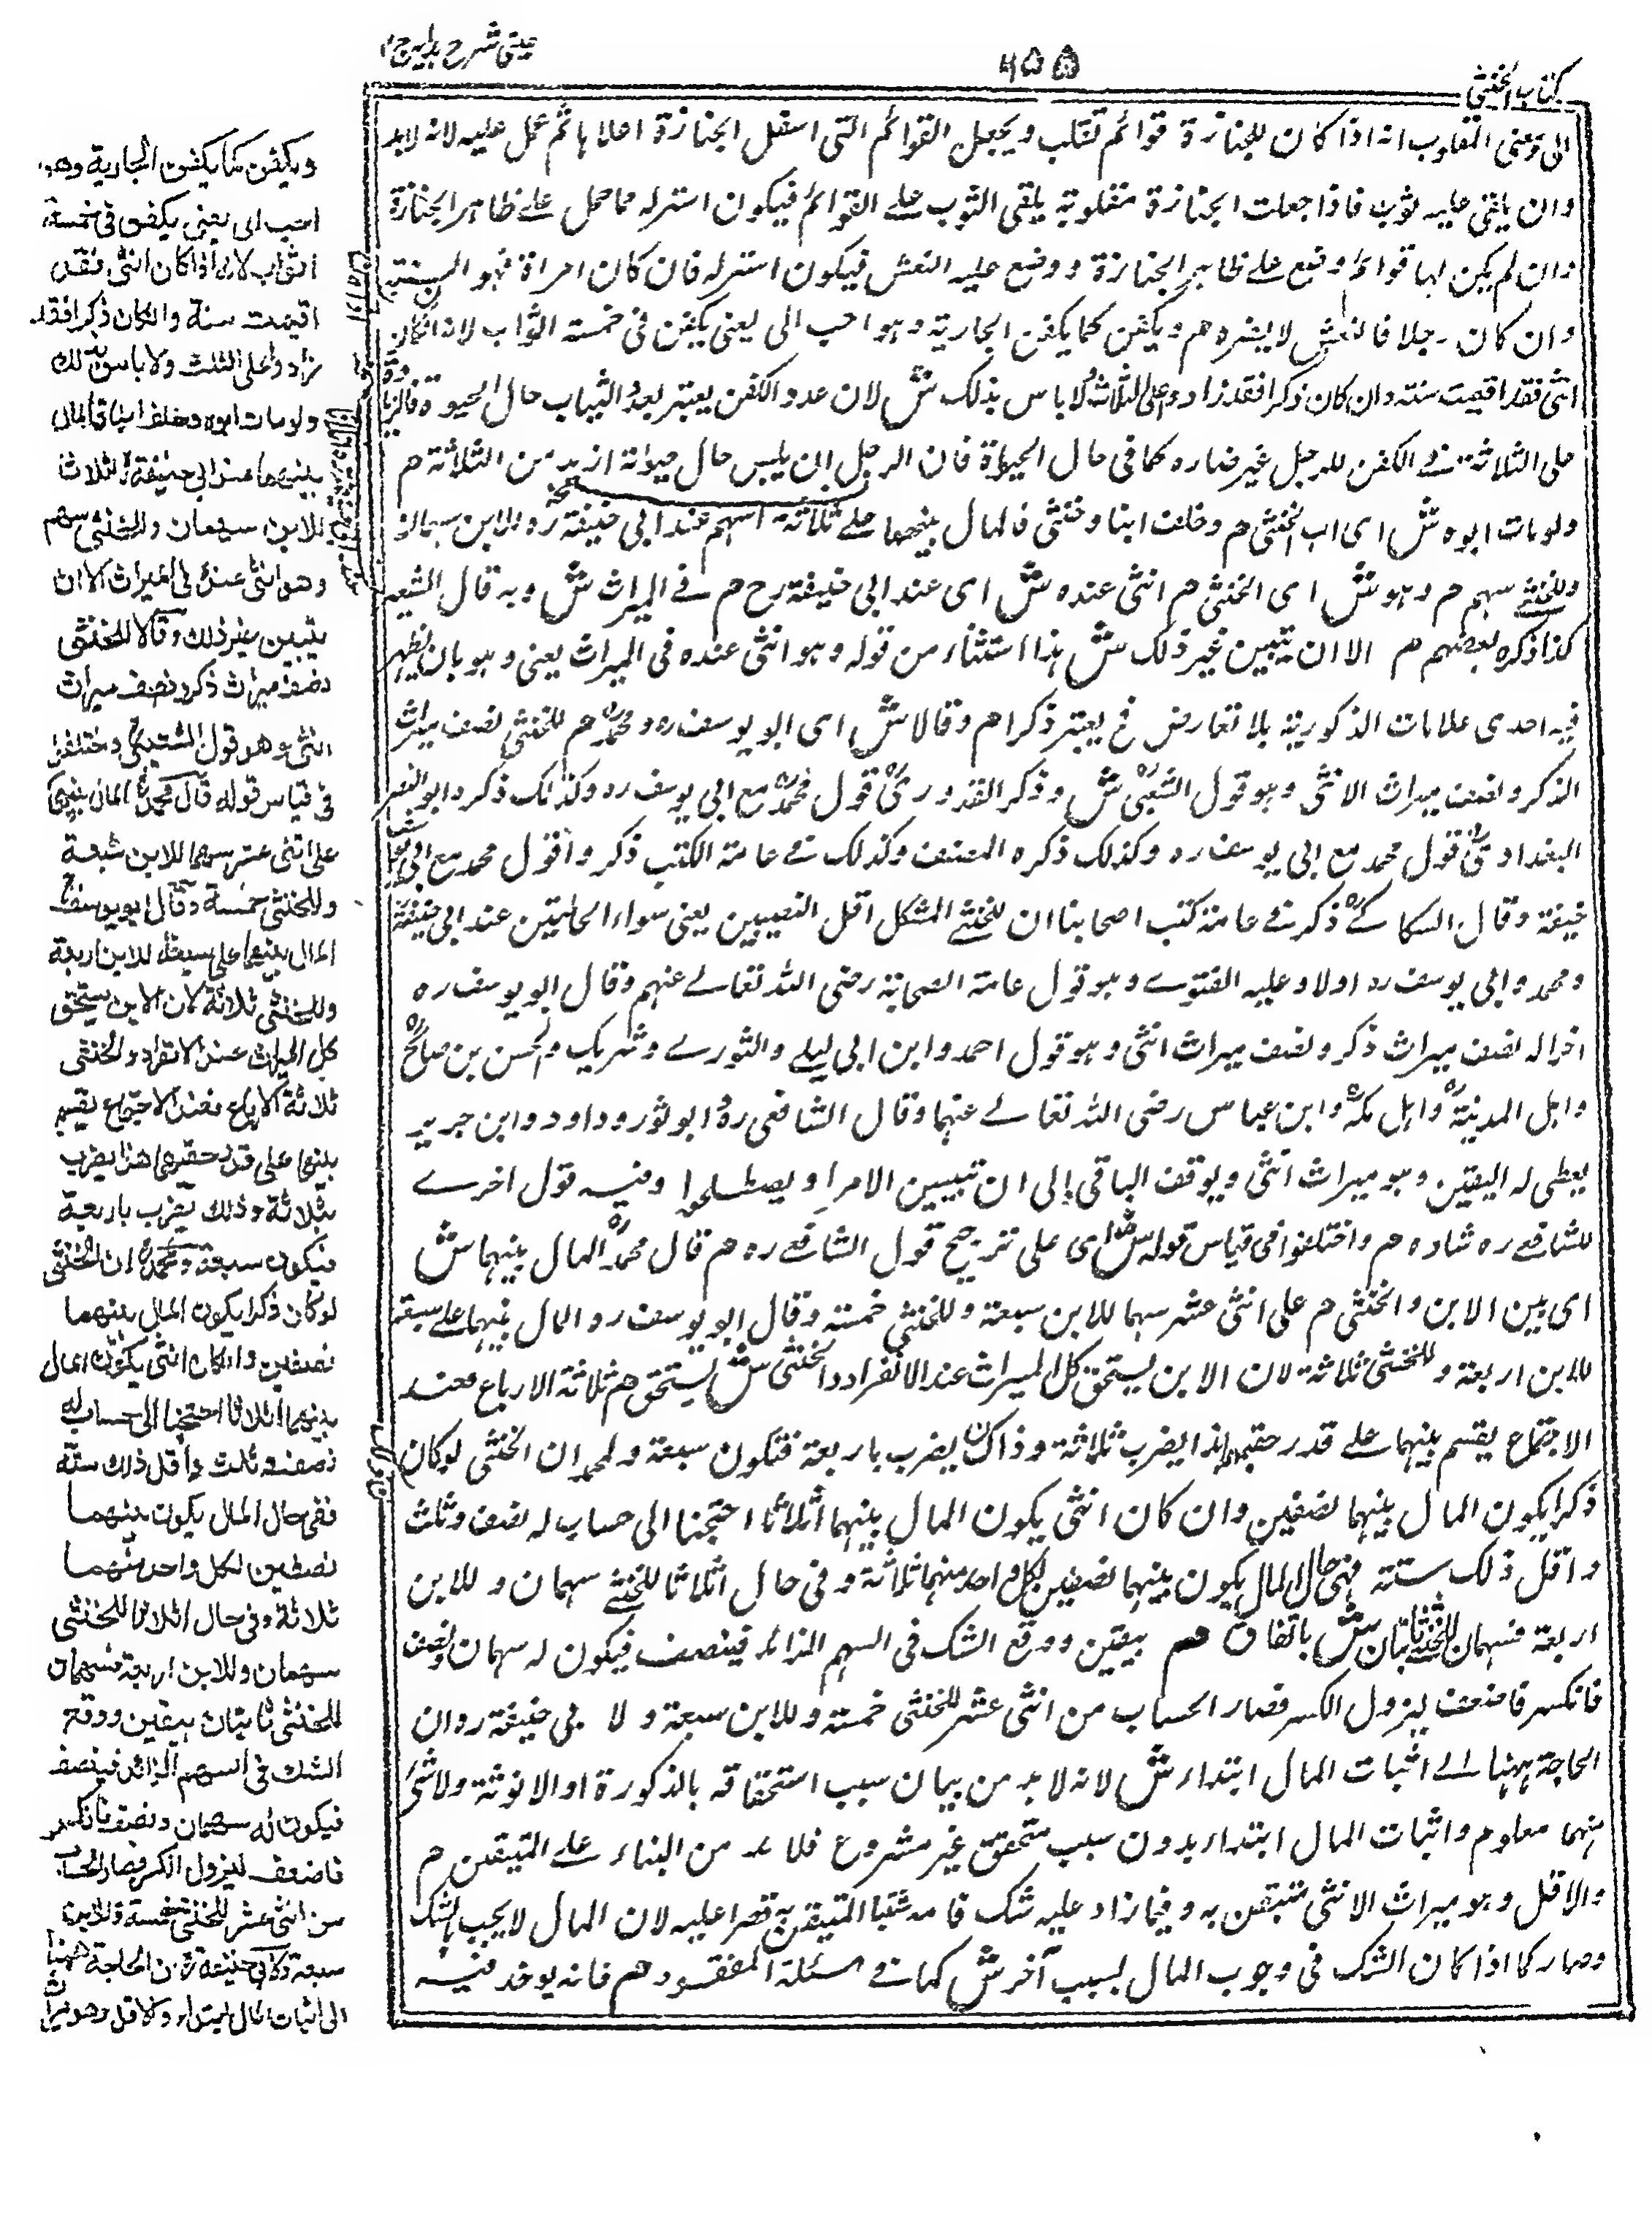 كتاب الخنثى
٤٥٥
عينى شرح هدايه ج ٤
انه اذا كان للجنازة قوائم تقلب ويجعل القوائم التى اسفل الجنازة اعلاها ثم حمل عليه لانه لابد
وان يلقى عليه ثوب فاذا جعلت الجنازة مقلوبة يلقى الثوب على القوائم فيكون استر له مما حمل على ظاهر الجنازة
وان لم يكن لها قوائم وضع على ظاهر الجنازة ووضع عليه النعش فيكون استر له فان كان امراة فهو السنة
وان كان رجلا فالنعش لا يضره هم ويكفن كما يكفن الجارية وهو احب الى يعنى يكفن فى خمسة اثواب لانه اذا كان
انثى فقد اقيمت سنة وان كان ذكرا فقد زادوا على الثلاث ولا باس بذلك ش لان عدد الكفن يعتبر بعدد الثياب حال الحيوة فالزيادة
على الثلاثة فى الكفن للرجل غير ضارة كما فى حال الحيوة فان الرجل ان يلبس حال حيوته ازيد من الثلاثة م
ولو مات ابوه ش اى اب الخنثى م وخلف ابنا وخنثى فالمال بينهما على ثلاثة اسهم عند ابى حنيفة ره للابن سهمان
وللخنثى سهم م وهو ش اى الخنثى م انثى عنده ش اى عند ابى حنيفة رح م فى الميراث ش وبه قال الشعبى
كذا ذكره بعضهم م الا ان يتبين غير ذلك ش هذا استثناء من قوله وهو انثى عنده فى الميراث يعنى وهو بان يظهر
فيه احدى علامات الذكورية بلا تعارض فح يعتبر ذكرا هم وقالا ش اى ابو يوسف ره ومحمد ره م للخنثى نصف ميراث
الذكر ونصف ميراث الانثى وهو قول الشعبى ش وذكر القدورى قول محمد مع ابى يوسف ره وكذلك ذكره ابو النصر
البغدادى قول محمد مع ابى يوسف ره وكذلك ذكره المصنف وكذلك فى عامة الكتب ذكروا قول محمد مع ابى
حنيفة وقال السكاكى ذكر فى عامة كتب اصحابنا ان للخنثى المشكل اقل النصيبين يعنى سواء الحالتين عند ابى حنيفة
ومحمد وابى يوسف ره اولا وعليه الفتوى وهو قول عامة الصحابة رضى الله تعالى عنهم وقال ابو يوسف ره
اخرا له نصف ميراث ذكر ونصف ميراث انثى وهو قول احمد وابن ابى ليلى والثورى وشريك والحسن بن صالح
واهل المدينة واهل مكة وابن عباس رضى الله تعالى عنهما وقال الشافعى ره وابو ثور وداود وابن جرير
يعطى له اليقين وهو ميراث انثى ويوقف الباقى الى ان تبيين الامر او يصطلحوا وفيه قول اخرى
للشافعى ره شاده م واختلفوا فى قياس قوله ش اى على ترجيح قول الشافعى ره هم قال محمد المال بينهما ش
اى بين الابن والخنثى م على اثنى عشر سهما للابن سبعة وللخنثى خمسة وقال ابو يوسف ره المال بينهما على سبعة
للابن اربعة وللخنثى ثلاثة لان الابن يستحق كل الميراث عند الانفراد والخنثى ش يستحق هم ثلاثة الارباع فعند
الاجتماع يقسم بينهما على قدر حقيهما هذا يضرب ثلاثة وذاك يضرب باربعة فتكون سبعة ولمحمد ان الخنثى لو كان
ذكرا يكون المال بينهما نصفين وان كان انثى يكون المال بينهما اثلاثا احتجنا الى حساب له نصف وثلث
واقل ذلك ستة فهى حال المال يكون بينهما نصفين لكل واحد منهما ثلاثة وفى حال اثلاثا للخنثى سهمان وللابن
اربعة فسهمان للخنثى ثابتان ش باتفاق هم بيقين ووقع الشك فى السهم الزائد فينصف فيكون له سهمان ونصف
فانكسر فاضعف ليزول الكسر فصار الحساب من اثنى عشر للخنثى خمسة وللابن سبعة ولا بى حنيفة ره ان
الحاجة ههنا الى اثبات المال ابتداء ش لانه لابد من بيان سبب استحقاقه بالذكورة او الانوثة ولا شئ
منهما معلوم واثبات المال ابتداء بدون سبب متحقق غير مشروع فلا بد من البناء على المتيقن م
والاقل وهو ميراث الانثى متيقن به وفيما زاد عليه شك فاثبتنا المتيقن به قصرا عليه لان المال لا يجب بالشك
وصار كما اذا كان الشك فى وجوب المال بسبب آخر ش كما فى مسئلة المفقود هم فانه يوخذ فيه
ويكفن كما يكفن الجارية وهو
احب الى يعنى يكفن فى خمسة
اثواب لانه اذا كان انثى فقد
اقيمت سنة وان كان ذكرا فقد
زادوا على الثلث ولا باس بذلك
ولو مات ابوه وخلف ابنا فالمال
بينهما عند ابى حنيفة اثلاثا
للابن سهمان وللخنثى سهم
وهو انثى عنده فى الميراث الا ان
يتبين غير ذلك وقالا للخنثى
نصف ميراث ذكر ونصف ميراث
انثى وهو قول الشعبى واختلفوا
فى قياس قوله قال محمد المال بينهما
على اثنى عشر سهما للابن سبعة
وللخنثى خمسة وقال ابو يوسف
المال بينهما على سبعة للابن اربعة
وللخنثى ثلاثة لان الابن يستحق
كل الميراث عند الانفراد والخنثى
ثلاثة الارباع فعند الاجتماع يقسم
بينهما على قدر حقيهما هذا يضرب
بثلاثة وذلك يضرب باربعة
فيكون سبعة ولمحمد ان الخنثى
لو كان ذكرا يكون المال بينهما
نصفين وان كان انثى يكون المال
بينهما اثلاثا احتجنا الى حساب له
نصف وثلث واقل ذلك ستة
ففى حال المال يكون بينهما
نصفين لكل واحد منهما
ثلاثة وفى حال اثلاثا للخنثى
سهمان وللابن اربعة فسهمان
للخنثى ثابتان بيقين ووقع
الشك فى السهم الزائد فينصف
فيكون له سهمان ونصف فانكسر
فاضعف ليزول الكسر فصار الحساب
من اثنى عشر للخنثى خمسة وللابن
سبعة ولابى حنيفة ان الحاجة ههنا
الى اثبات المال ابتداء والاقل وهو ميراث